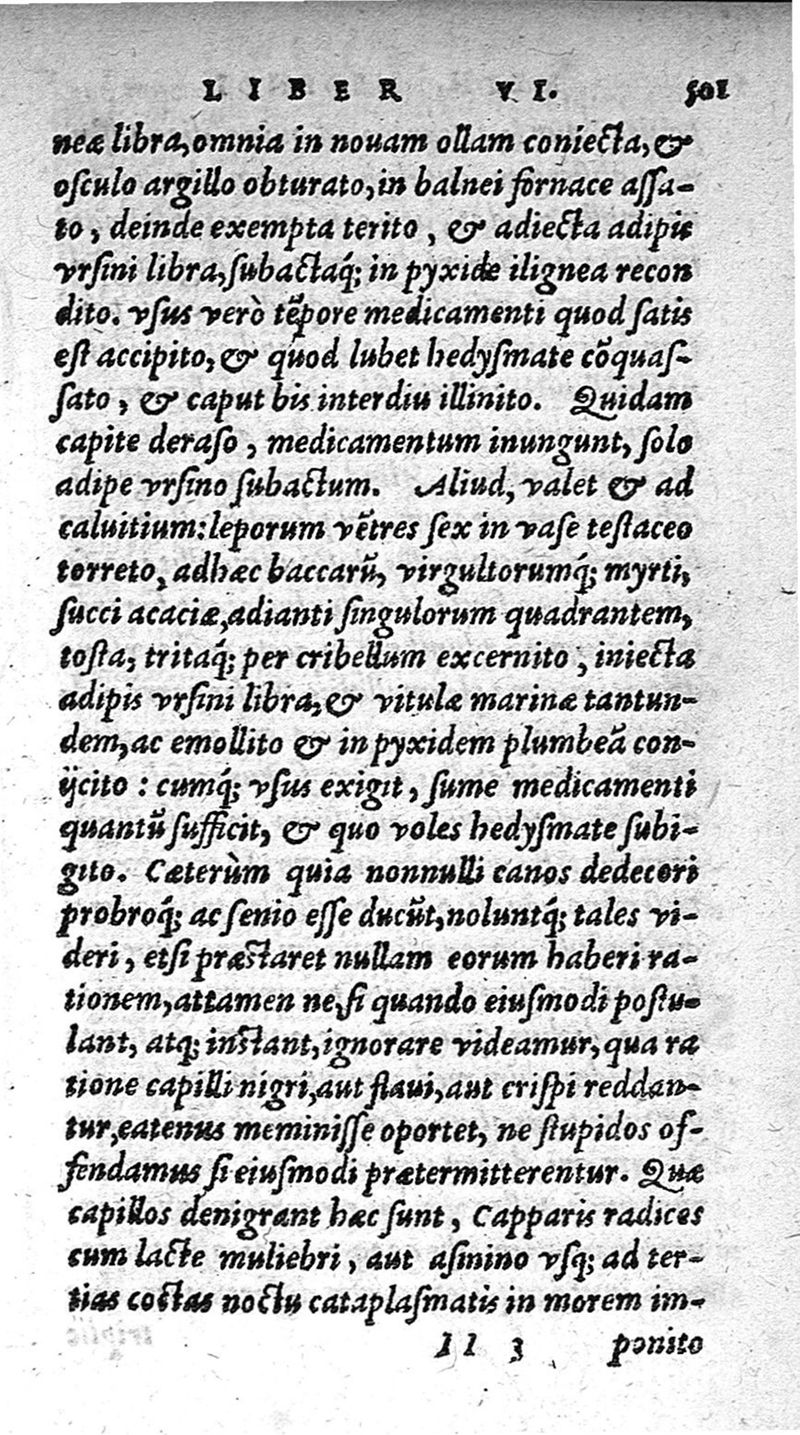 LIBER VI. 501
neæ libra, omnia in nouam ollam coniecta, &
osculo argillo obturato, in balnei fornace assa-
to, deinde exempta terito, & adiecta adipis
vrsini libra, subactaq́; in pyxide ilignea recon
dito. vsus verò tẽpore medicamenti quod satis
est accipito, & quod lubet hedysmate cõquas-
sato, & caput bis interdiu illinito. Quidam
capite deraso, medicamentum inungunt, solo
adipe vrsino subactum. Aliud, valet & ad
caluitium: leporum vẽtres sex in vase testaceo
torreto, adhæc baccarũ, virgultorumq́; myrti,
succi acaciæ, adianti singulorum quadrantem,
tosta, tritaq́; per cribellum excernito, iniecta
adipis vrsini libra, & vitulæ marinæ tantun-
dem, ac emollito & in pyxidem plumbeã con-
ijcito: cumq́; vsus exigit, sume medicamenti
quantũ sufficit, & quo voles hedysmate subi-
gito. Cæterùm quia nonnulli canos dedecori
probroq́; ac senio esse ducũt, noluntq́; tales vi-
deri, etsi præstaret nullam eorum haberi ra-
tionem, attamen ne, si quando eiusmodi postu-
lant, atq; instant, ignorare videamur, qua ra
tione capilli nigri, aut flaui, aut crispi reddan-
tur, eatenus meminisse oportet, ne stupidos of-
fendamus si eiusmodi prætermitterentur. Quæ
capillos denigrant hæc sunt, Capparis radices
cum lacte muliebri, aut asinino vsq; ad ter-
tias coctas noctu cataplasmatis in morem im-
II 3 ponito